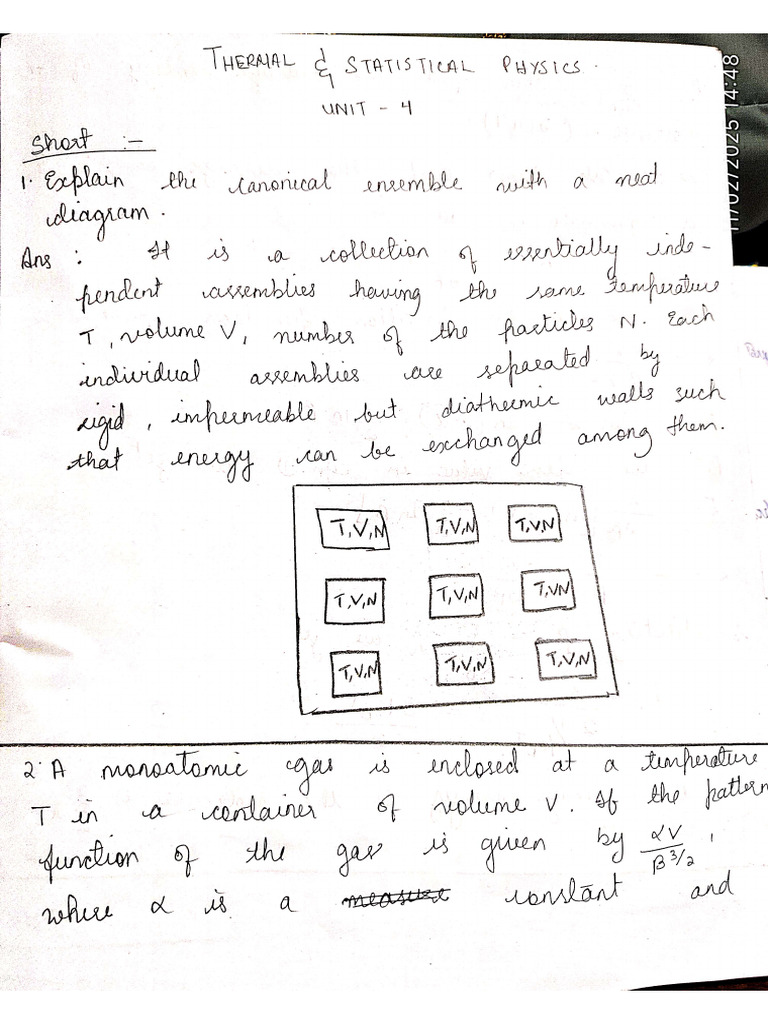 THERMAL & STATISTICAL PHYSICS.
UNIT - 4
Short :-
1. Explain the canonical ensemble with a neat
diagram.
Ans : It is a collection of essentially inde-
pendent assemblies having the same temperature
T, volume V, number of the particles N. Each
individual assemblies are separated by
rigid, impermeable but diathermic walls such
that energy can be exchanged among them.
T,V,N T,V,N T,V,N
T,V,N T,V,N T,VN
T,V,N T,V,N T,V,N
2. A monoatomic gas is enclosed at a temperature
T in a container of volume V. If the pattern
function of the gas is given by αV/β^3/2,
where α is a measure constant and
11/02/2025 14:48